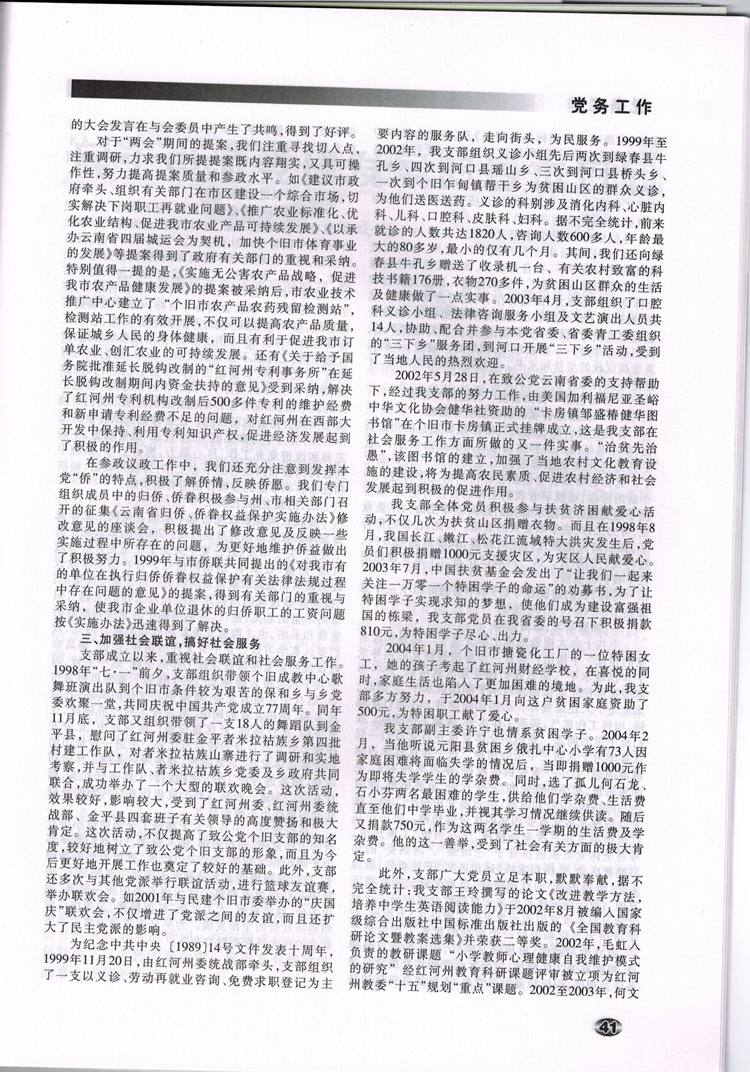 党务工作
的大会发言在与会委员中产生了共鸣,得到了好评。
对于“两会”期间的提案,我们注重寻找切入点,
注重调研,力求我们所提提案既内容翔实,又具可操
作性,努力提高提案质量和参政水平。如《建议市政
府牵头、组织有关部门在市区建设一个综合市场,切
实解决下岗职工再就业问题》、《推广农业标准化、优
化农业结构、促进我市农业产品可持续发展》、《以承
办云南省四届城运会为契机,加快个旧市体育事业
的发展》等提案得到了政府有关部门的重视和采纳。
特别值得一提的是,《实施无公害农产品战略,促进
我市农产品健康发展》的提案被采纳后,市农业技术
推广中心建立了 “个旧市农产品农药残留检测站”,
检测站工作的有效开展,不仅可以提高农产品质量,
保证城乡人民的身体健康, 而且有利于促进我市订
单农业、创汇农业的可持续发展。还有《关于给予国
务院批准延长脱钩改制的“红河州专利事务所”在延
长脱钩改制期间内资金扶持的意见》受到采纳,解决
了红河州专利机构改制后500多件专利的维护经费
和新申请专利经费不足的问题,对红河州在西部大
开发中保持、利用专利知识产权,促进经济发展起到
了积极的作用。
在参政议政工作中,我们还充分注意到发挥本
党“侨”的特点,积极了解侨情,反映侨愿。我们专门
组织成员中的归侨、侨眷积极参与州、市相关部门召
开的征集《云南省归侨、侨眷权益保护实施办法》修
改意见的座谈会,积极提出了修改意见及反映一些
实施过程中所存在的问题,为更好地维护侨益做出
了积极努力。1999年与市侨联共同提出的《对我市有
的单位在执行归侨侨眷权益保护有关法律法规过程
中存在问题的意见》的提案,得到有关部门的重视与
采纳,使我市企业单位退休的归侨职工的工资问题
按《实施办法》迅速得到了解决。
三、加强社会联谊,搞好社会服务
支部成立以来,重视社会联谊和社会服务工作。
1998年“七·一”前夕,支部组织带领个旧成教中心歌
舞班演出队到个旧市条件较为艰苦的保和乡与乡党
委欢聚一堂,共同庆祝中国共产党成立77周年。同年
11月底,支部又组织带领了一支18人的舞蹈队到金
平县,慰问了红河州委驻金平者米拉祜族乡第四批
村建工作队,对者米拉祜族山寨进行了调研和实地
考察,并与工作队、者米拉祜族乡党委及乡政府共同
联合,成功举办了一个大型的联欢晚会。这次活动,
效果较好,影响较大,受到了红河州委、红河州委统
战部、金平县四套班子有关领导的高度赞扬和极大
肯定。这次活动,不仅提高了致公党个旧支部的知名
度,较好地树立了致公党个旧支部的形象,而且为今
后更好地开展工作也奠定了较好的基础。此外,支部
还多次与其他党派举行联谊活动,进行篮球友谊赛,
举办联欢会。如2001年与民建个旧市委举办的“庆国
庆”联欢会,不仅增进了党派之间的友谊,而且还扩
大了民主党派的影响。
为纪念中共中央〔1989〕14号文件发表十周年,
1999年11月20日,由红河州委统战部牵头,支部组织
了一支以义诊、劳动再就业咨询、免费求职登记为主
要内容的服务队,走向街头,为民服务。1999年至
2002年,我支部组织义诊小组先后两次到绿春县牛
孔乡、四次到河口县瑶山乡、三次到河口县桥头乡、
一次到个旧乍甸镇帮干乡为贫困山区的群众义诊,
为他们送医送药。义诊的科别涉及消化内科、心脏内
科、儿科、口腔科、皮肤科、妇科。据不完全统计,前来
就诊的人数共达1820人,咨询人数600多人,年龄最
大的80多岁,最小的仅有几个月。其间,我们还向绿
春县牛孔乡赠送了收录机一台、有关农村致富的科
技书籍176册,衣物270多件,为贫困山区群众的生活
及健康做了一点实事。2003年4月,支部组织了口腔
科义诊小组、法律咨询服务小组及文艺演出人员共
14人,协助、配合并参与本党省委、省委青工委组织
的“三下乡”服务团,到河口开展“三下乡”活动,受到
了当地人民的热烈欢迎。
2002年5月28日,在致公党云南省委的支持帮助
下,经过我支部的努力工作,由美国加利福尼亚圣峪
中华文化协会健华社资助的 “卡房镇邹盛椿健华图
书馆”在个旧市卡房镇正式挂牌成立,这是我支部在
社会服务工作方面所做的又一件实事。“治贫先治
愚”,该图书馆的建立,加强了当地农村文化教育设
施的建设,将为提高农民素质、促进农村经济和社会
发展起到积极的促进作用。
我支部全体党员积极参与扶贫济困献爱心活
动,不仅几次为扶贫山区捐赠衣物。而且在1998年8
月,我国长江、嫩江、松花江流域特大洪灾发生后,党
员们积极捐赠1000元支援灾区,为灾区人民献爱心。
2003年7月,中国扶贫基金会发出了“让我们一起来
关注一万零一个特困学子的命运”的劝募书,为了让
特困学子实现求知的梦想,使他们成为建设富强祖
国的栋梁,我支部党员在我省委的号召下积极捐款
810元,为特困学子尽心、出力。
2004年1月,个旧市搪瓷化工厂的一位特困女
工,她的孩子考起了红河州财经学校,在喜悦的同
时,家庭生活也陷入了更加困难的境地。为此,我支
部多方努力,于2004年1月向这户贫困家庭资助了
500元,为特困职工献了爱心。
我支部副主委许宁也情系贫困学子。2004年2
月,当他听说元阳县贫困乡俄扎中心小学有73人因
家庭困难将面临失学的情况后,当即捐赠1000元作
为即将失学学生的学杂费。同时,选了孤儿何石龙、
石小芬两名最困难的学生,供给他们学杂费、生活费
直至他们中学毕业,并视其学习情况继续供读。随后
又捐款750元,作为这两名学生一学期的生活费及学
杂费。他的这一善举,受到了社会有关方面的极大肯
定。
此外,支部广大党员立足本职,默默奉献,据不
完全统计:我支部王玲撰写的论文《改进教学方法,
培养中学生英语阅读能力》于2002年8月被编入国家
级综合出版社中国标准出版社出版的《全国教育科
研论文暨教案选集》并荣获二等奖。2002年,毛虹入
负责的教研课题“小学教师心理健康自我维护模式
的研究” 经红河州教育科研课题评审被立项为红河
州教委“十五”规划“重点”课题。2002至2003年,何文
41